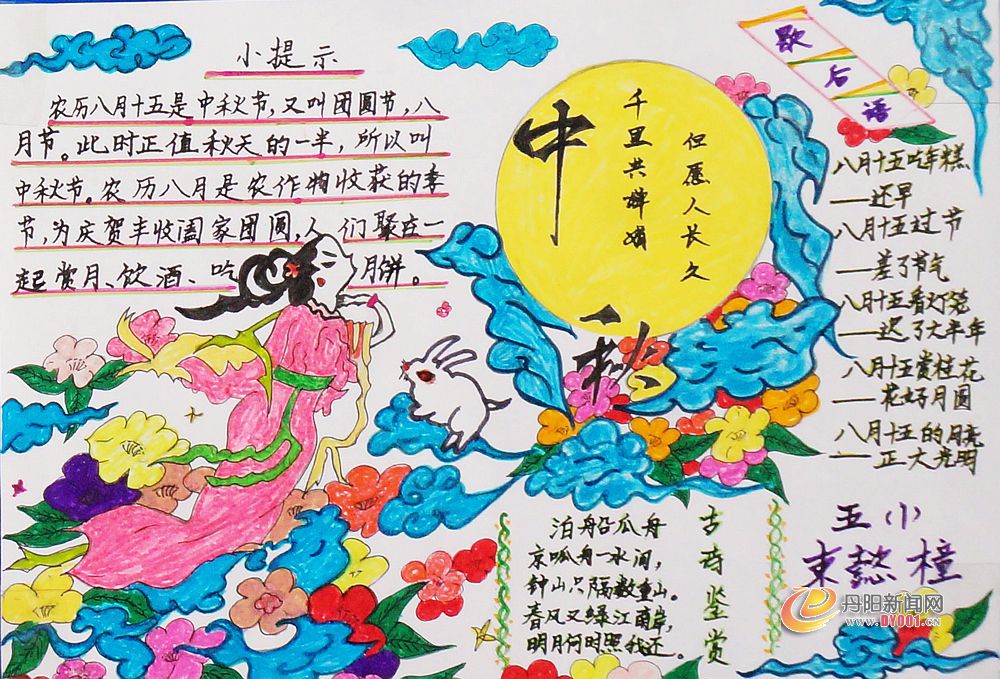 小提示
农历八月十五是中秋节，又叫团圆节，八
月节。此时正值秋天的一半，所以叫
中秋节。农历八月是农作物收获的季
节，为庆贺丰收阖家团圆，人们聚在一
起赏月、饮酒、吃月饼。
中秋
但愿人长久
千里共婵娟
歇后语
八月十五吃年糕
——还早
八月十五过节
——差了节气
八月十五看灯笼
——迟了大半年
八月十五赏桂花
——花好月圆
八月十五的月亮
——正大光明
古诗鉴赏
泊舟谷瓜舟
京呱舟一水涧，
钟山只隔数重山。
春风又绿江南岸，
明月何时照我还。
五(小)
束懿橦
丹阳新闻网
www.DY001.cn